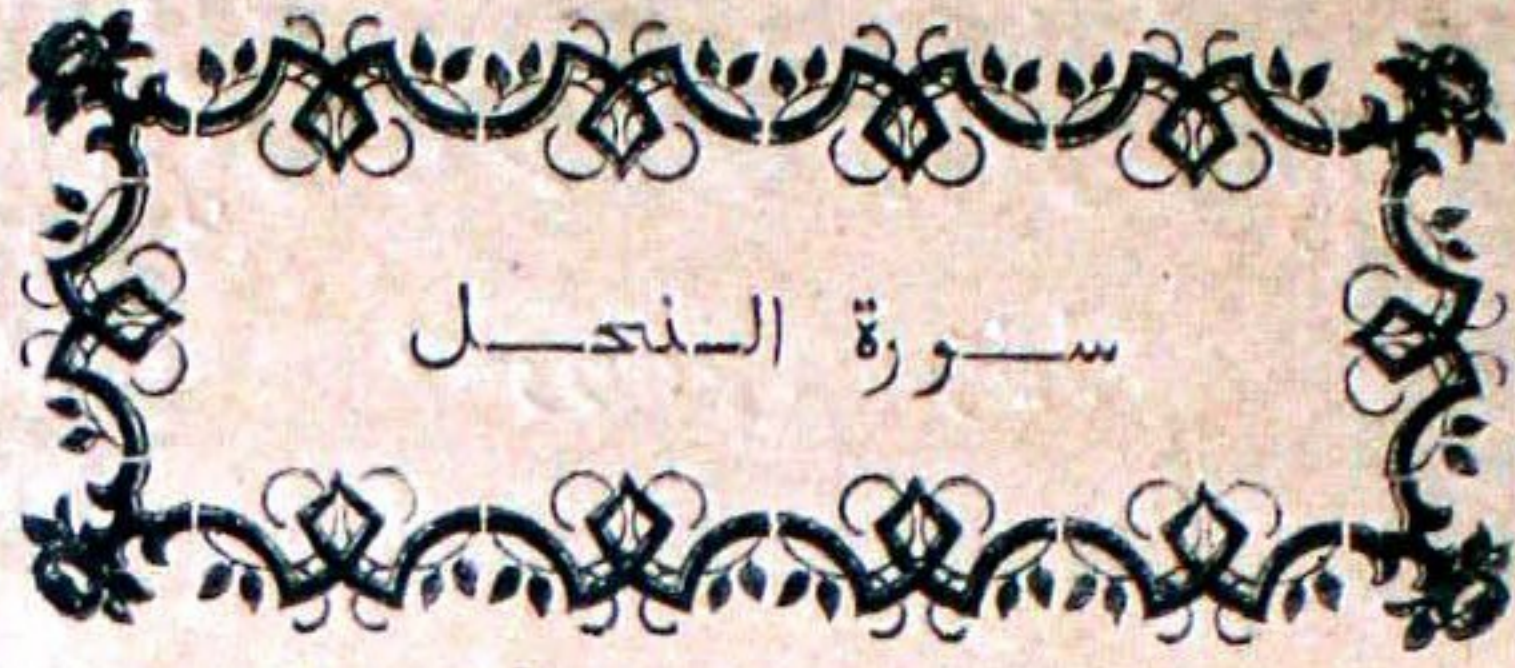 سورة النحل